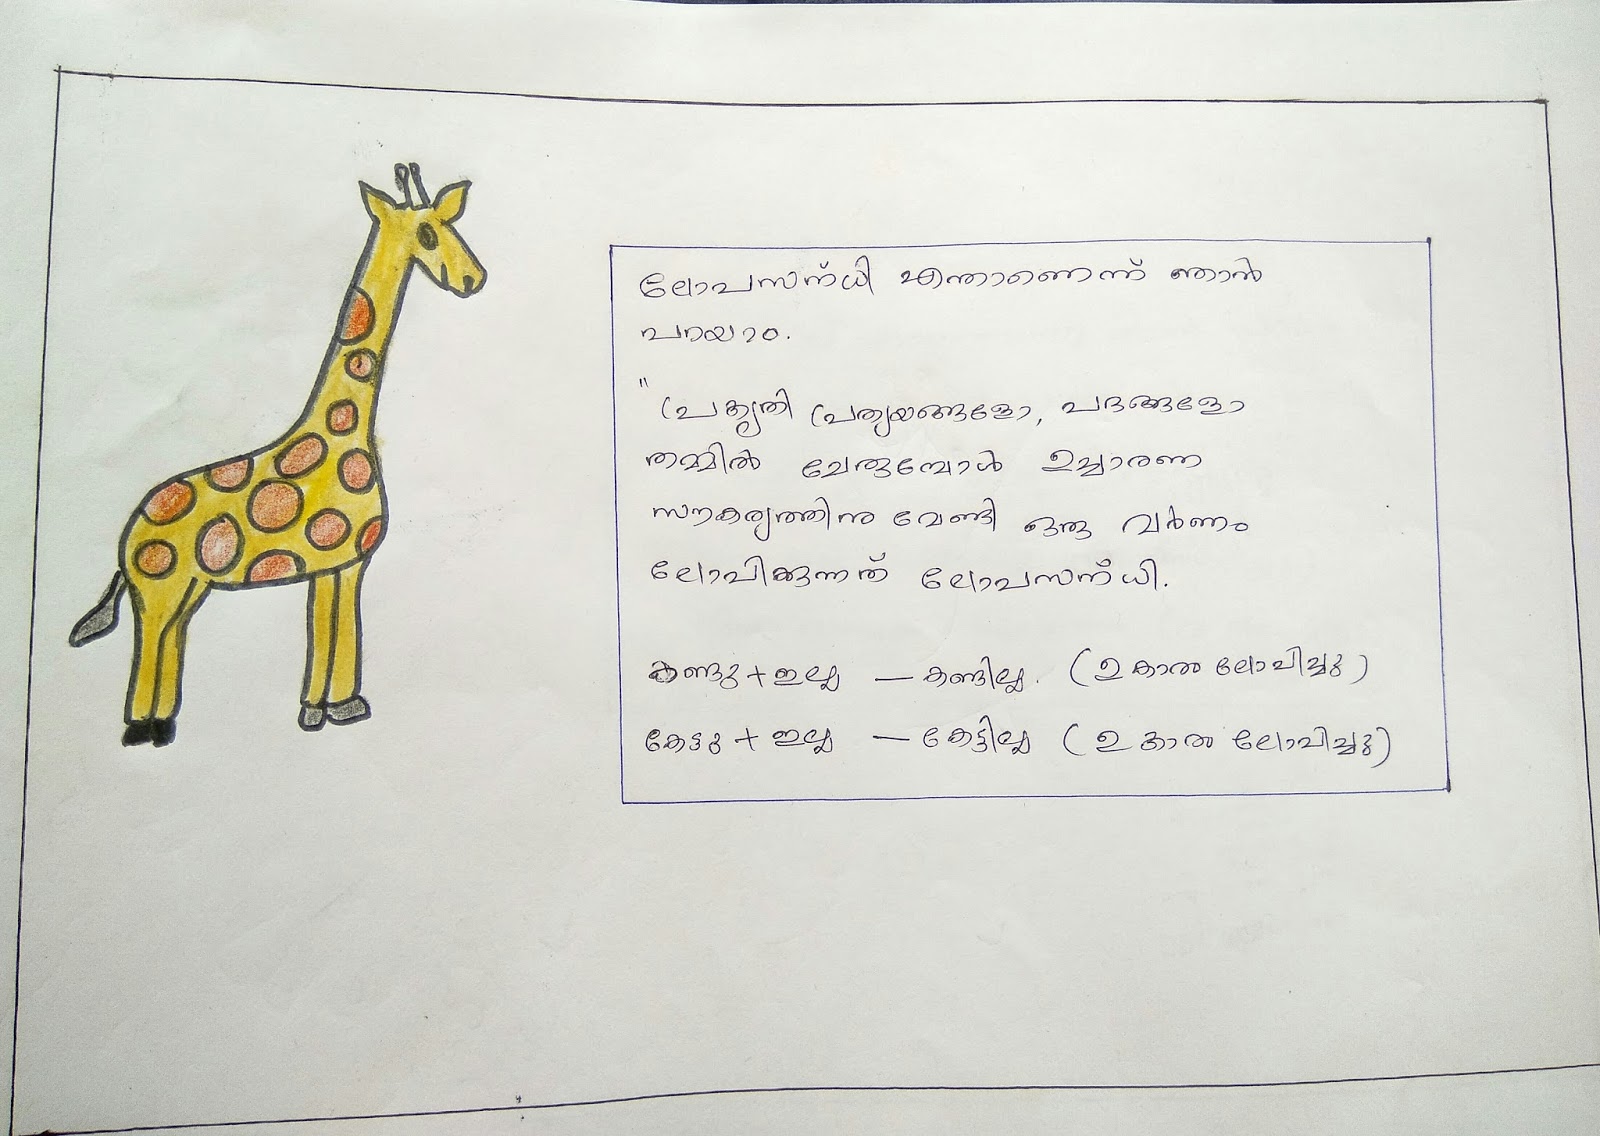 ലോപസന്ധി എന്താണെന്ന് ഞാൻ
പറയാം.
"പ്രകൃതി പ്രത്യയങ്ങളോ, പദങ്ങളോ
തമ്മിൽ ചേരുമ്പോൾ ഉച്ചാരണ
സൗകര്യത്തിനു വേണ്ടി ഒരു വർണം
ലോപിക്കുന്നത് ലോപസന്ധി.
കണ്ടു + ഇല്ല — കണ്ടില്ല. (ഉകാരം ലോപിച്ചു)
കേട്ടു + ഇല്ല — കേട്ടില്ല (ഉകാരം ലോപിച്ചു)